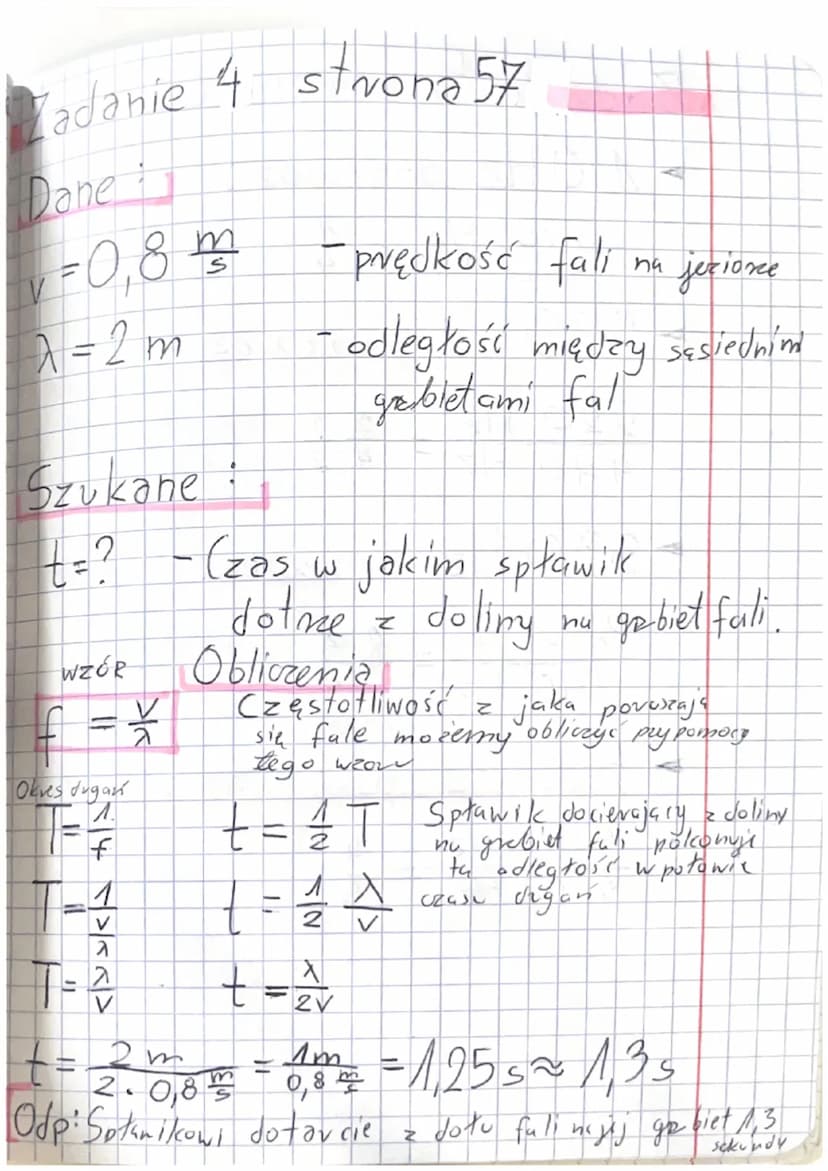 Zadanie 4 strona 57
Dane :
v = 0,8 m/s - prędkość fali na jeziorze
λ = 2 m - odległość między sąsiednimi
grzbietami fal
Szukane :
t = ? - Czas w jakim spławik
dotrze z doliny na grzbiet fali.
WZÓR Obliczenia
f = v/λ Częstotliwość z jaka poruszają
się fale możemy obliczyć przy pomocy
tego wzoru
Okres drgań
T = 1/f t = 1/2 T Spławik docierający z doliny
na grzbiet fali pokonuje
tą odległość w połowie
czasu drgań
T = 1/(v/λ) t = 1/2 λ/v
T = λ/v t = λ/2v
t = 2 m/(2 · 0,8 m/s) = 1m/(0,8 m/s) = 1,25 s ≈ 1,3 s
Odp: Spławikowi dotarcie z dołu fali na jej grzbiet 1,3
sekundy